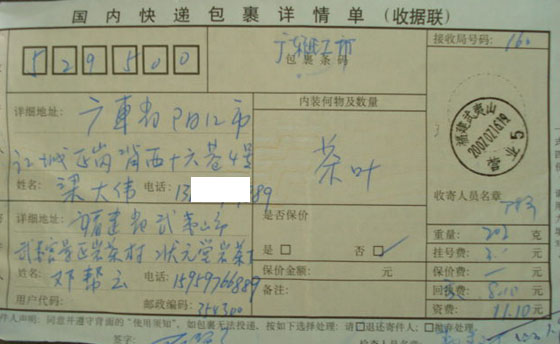 国内快递包裹详情单（收据联）
接收局号码： 160
529500
包裹条码
详细地址： 广東省阳江市
江城区岗背西十六巷4号
姓名： 梁大伟 电话： 13 89
内装何物及数量
茶叶
福建武夷山
收寄人员名章
详细地址： 福建省武夷山市
姓名： 邓帮云 电话： 15959766889
用户代码： 邮政编码： 354300
是否保价
是 □ 否 □
保价金额： 元
备注：
重量： 203 克
挂号费： 元
保价费： 元
回执费 8.10 元
资费： 11.10 元
件人声明：同意并遵守背面的“使用须知”，如包裹无法投递，按如下选择处理：请□退还寄件人；
签字：